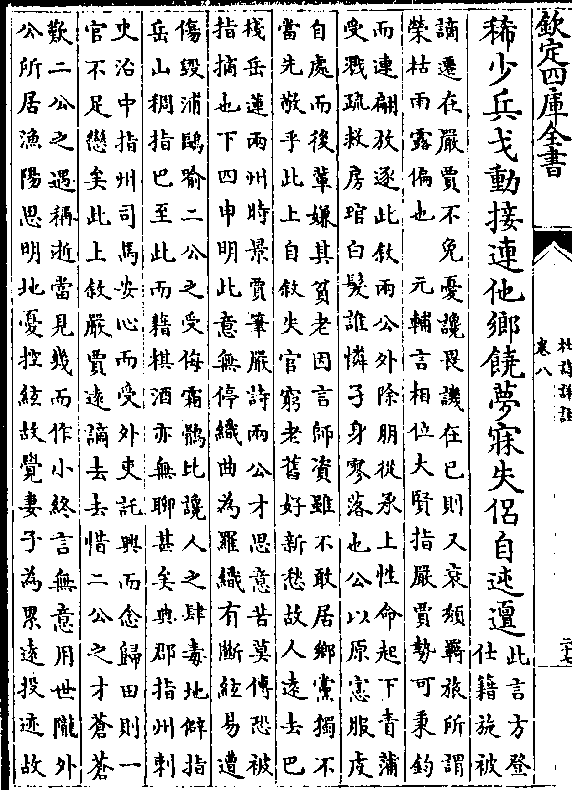 欽定四庫全書
杜詩詳註
卷八
二十七
稀少兵戈動接連他鄉饒夢寐失侶自迍邅
此言方登
仕籍旋被
謫遷在嚴賈不免憂讒畏譏在已則又衰頹羇旅所謂
榮枯雨露偏也 元輔言相位大賢指嚴賈勢可秉鈞
而連翩放逐此敘兩公外除朋從承上性命起下青蒲
受戮疏救房琯白髮誰憐孑身寥落也公以原憲服虔
自處而後輩嫌其貧老因言師資雖不敢居鄉黨獨不
當先敬乎此上自敘失官窮老舊好新愁故人遠去巴
棧岳蓮兩州時景賈筆嚴詩兩公才思意苦莫傳恐被
指摘也下四申明此意無停織曲為羅織有斷絃易遭
傷毀浦鷗喻二公之受侮霜鶻比讒人之肆毒地僻指
岳山稠指巴至此而藉棋酒亦無聊甚矣典郡指州刺
史治中指州司馬安心而受外吏託興而念歸田則一
官不足戀矣此上敘嚴賈遠謫去去惜二公之才蒼蒼
歎二公之遇稱逝當見幾而作小終言無意用世隴外
公所居漁陽思明地憂控絃故覺妻子為累遠投迹故